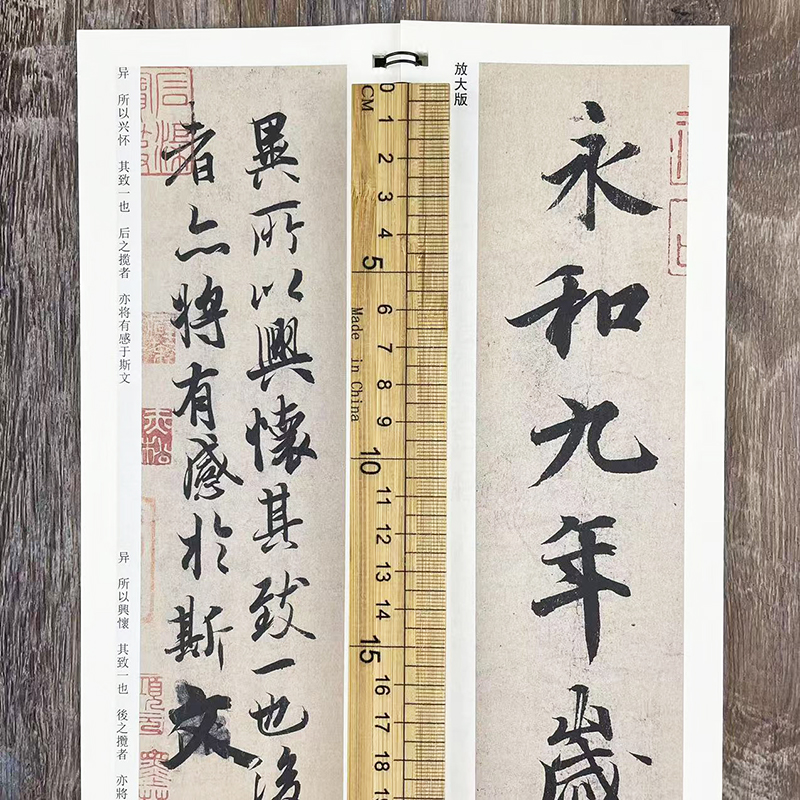 放大版
永和九年歲
CM
0
1
2
3
4
5
6
7
8
9
10
11
12
13
14
15
16
17
18
Made in China
異所以興懷其致一也後
者亦將有感於斯文
异 所以兴怀 其致一也 后之揽者 亦将有感于斯文
异 所以興懷 其致一也 後之攬者 亦將